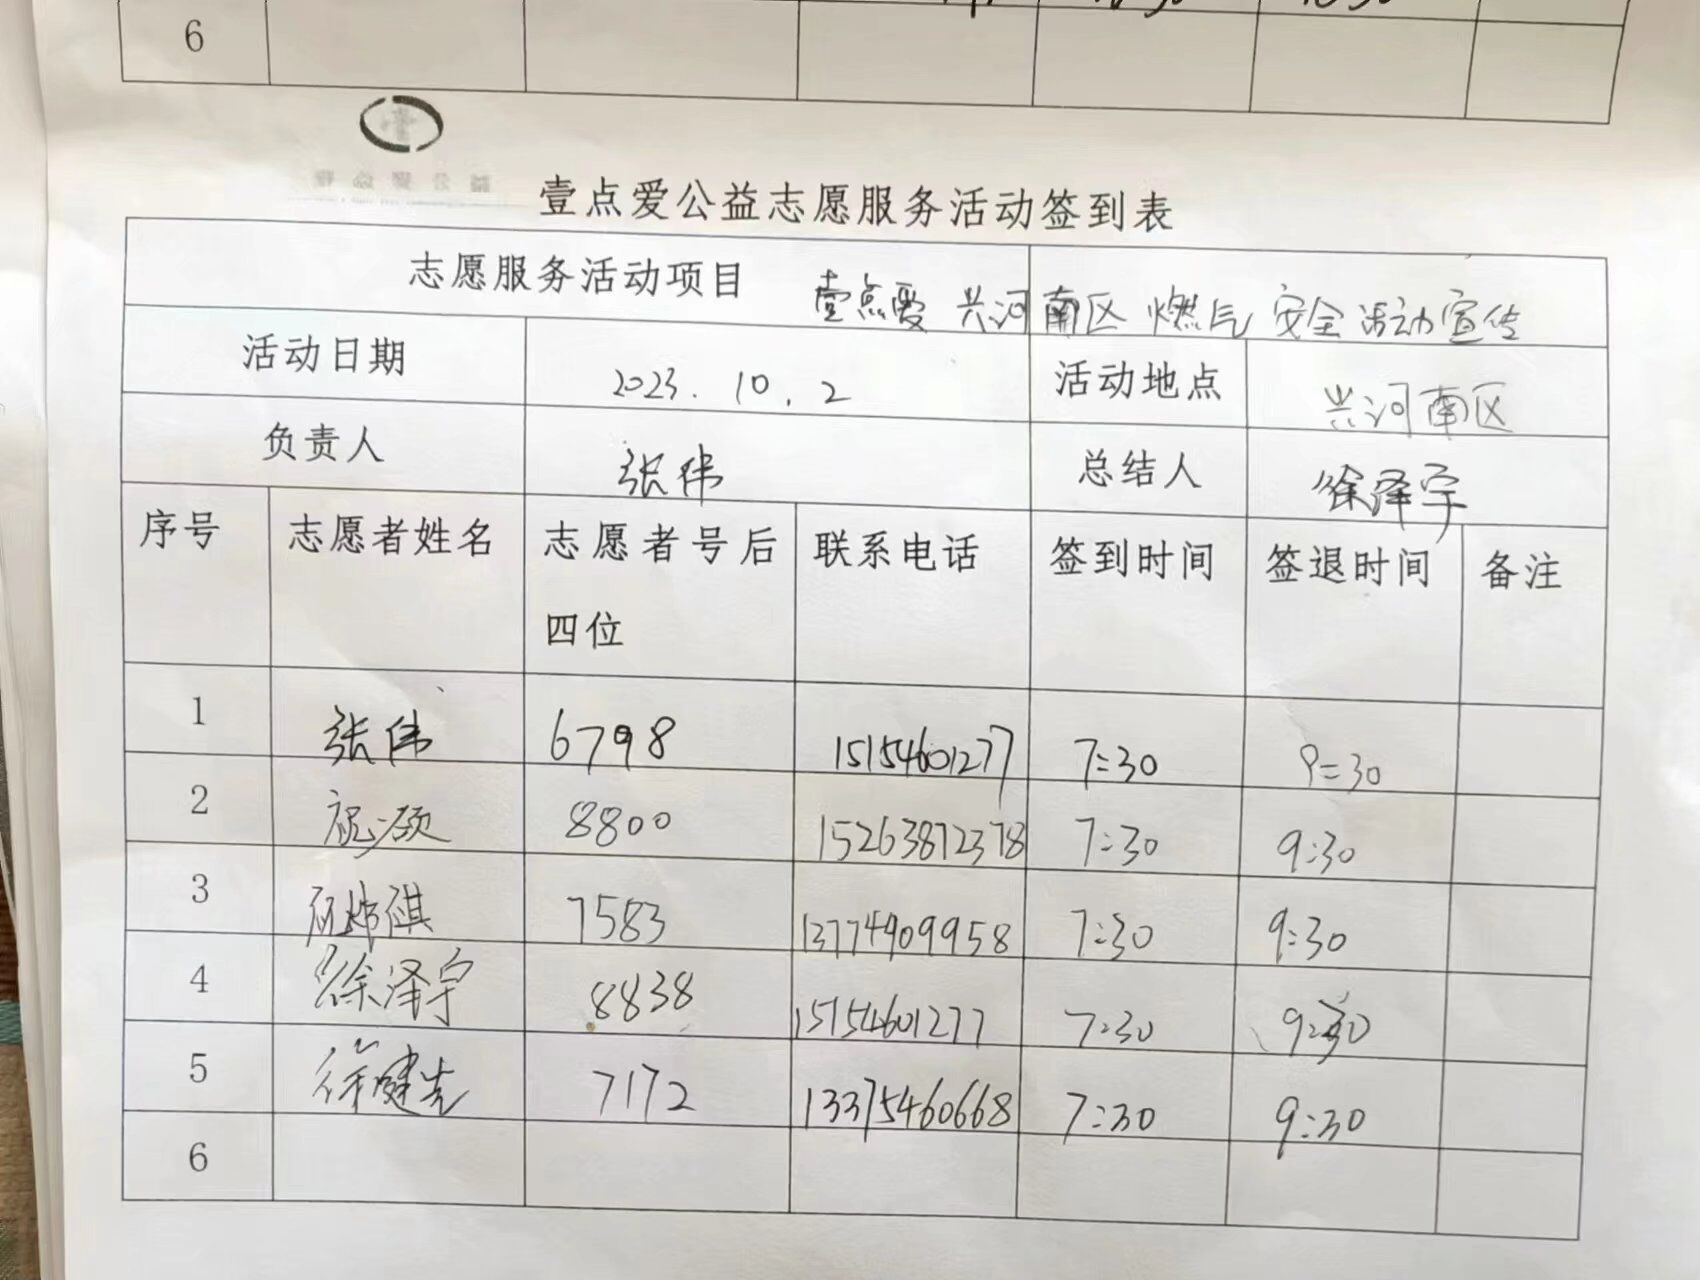 6
壹点爱公益志愿服务活动签到表
志愿服务活动项目 壹点爱 兴河南区 燃气 安全活动宣传
活动日期 2023.10.2 活动地点 兴河南区
负责人 张伟 总结人 徐泽宇
序号 志愿者姓名 志愿者号后 联系电话 签到时间 签退时间 备注
四位
1 张伟 6798 15154601277 7:30 9:30
2 8800 15263872378 7:30 9:30
3 7583 13774909958 7:30 9:30
4 徐泽宇 8838 15154601277 7:30 9:30
5 徐健 7172 13375460668 7:30 9:30
6